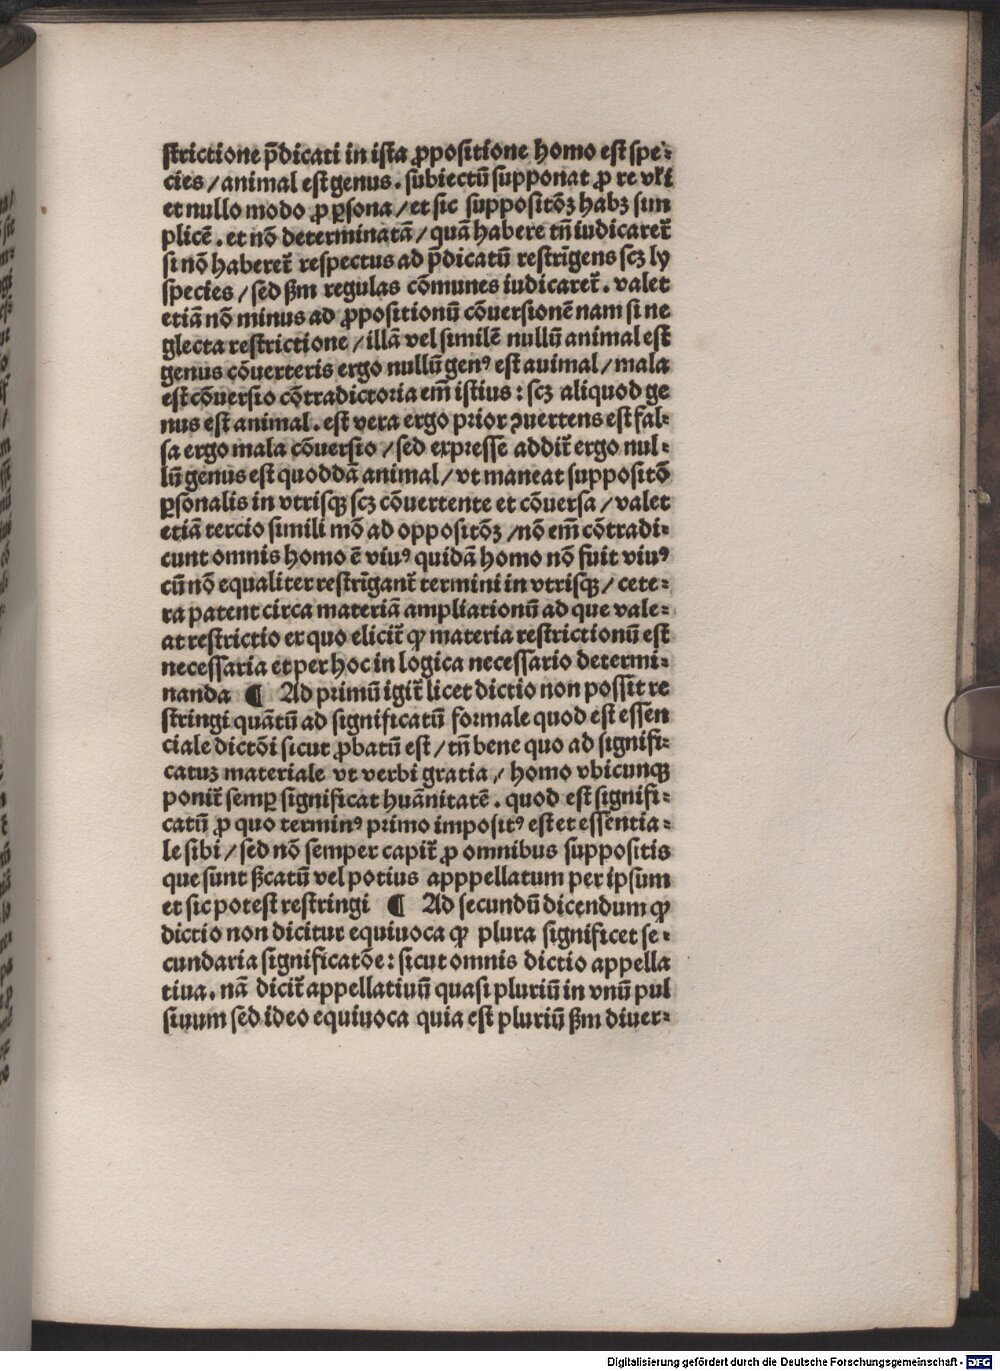 strictione p̄dicati in ista ꝓpositione homo est spe⸗
cies / animal est genus . subiectū supponat ꝓ re vl̄i
et nullo modo ꝓ ꝑsona / et sic suppositōꝫ habꝫ sim
plicē . et nō determinatā / quā habere tn̄ iudicaret̄
si nō haberet̄ respectus ad p̄dicatū restrīgens scꝫ ly
species / sed ẜm regulas cōmunes iudicaret̄ . valet
etiā nō minus ad ꝓpositionū cōuersionē nam si ne
glecta restrictione / illā vel similē nullū animal est
genus cōuerteris ergo nullū genꝰ est auimal / mala
est cōuersio cōtradictoria em̄ istius : scꝫ aliquod ge
nus est animal . est vera ergo prior ꝯuertens est fal⸗
sa ergo mala cōuersio / sed expresse addit̄ ergo nul⸗
lū genus est quoddā animal / vt maneat suppositō
ꝑsonalis in vtrisqꝫ scꝫ cōuertente et cōuersa / valet
etiā tercio simili mō ad oppositōꝫ / nō em̄ cōtradi⸗
cunt omnis homo ē viuꝰ quidā homo nō fuit viuꝰ
cū nō equaliter restrīgant̄ termini in vtrisqꝫ / cete⸗
ra patent circa materiā ampliationū ad que vale⸗
at restrictio ex quo elicit̄ ꝙ materia restrictionū est
necessaria et per hoc in logica necessario determi⸗
nanda ¶ Ad primū igit̄ licet dictio non possit re
stringi quātū ad significatū formale quod est essen
ciale dictōi sicut ꝓbatū est / tn̄ bene quo ad signifi⸗
catuꝫ materiale vt verbi gratia / homo vbicunqꝫ
ponit̄ semꝑ significat huānitatē . quod est signifi⸗
catū ꝓ quo terminꝰ primo impositꝰ est et essentia⸗
le sibi / sed nō semper capit̄ ꝓ omnibus suppositis
que sunt ẜcatū vel potius apppellatum per ipsum
et sic potest restringi ¶ Ad secundū dicendum ꝙ
dictio non dicitur equiuoca ꝙ plura significet se⸗
cundaria significatōe : sicut omnis dictio appella
tiua . nā dicit̄ appellatiuū quasi pluriū in vnū pul
siuum sed ideo equiuoca quia est pluriū ẜm diuer⸗
Digitalisierung gefördert durch die Deutsche Forschungsgemeinschaft - DFG